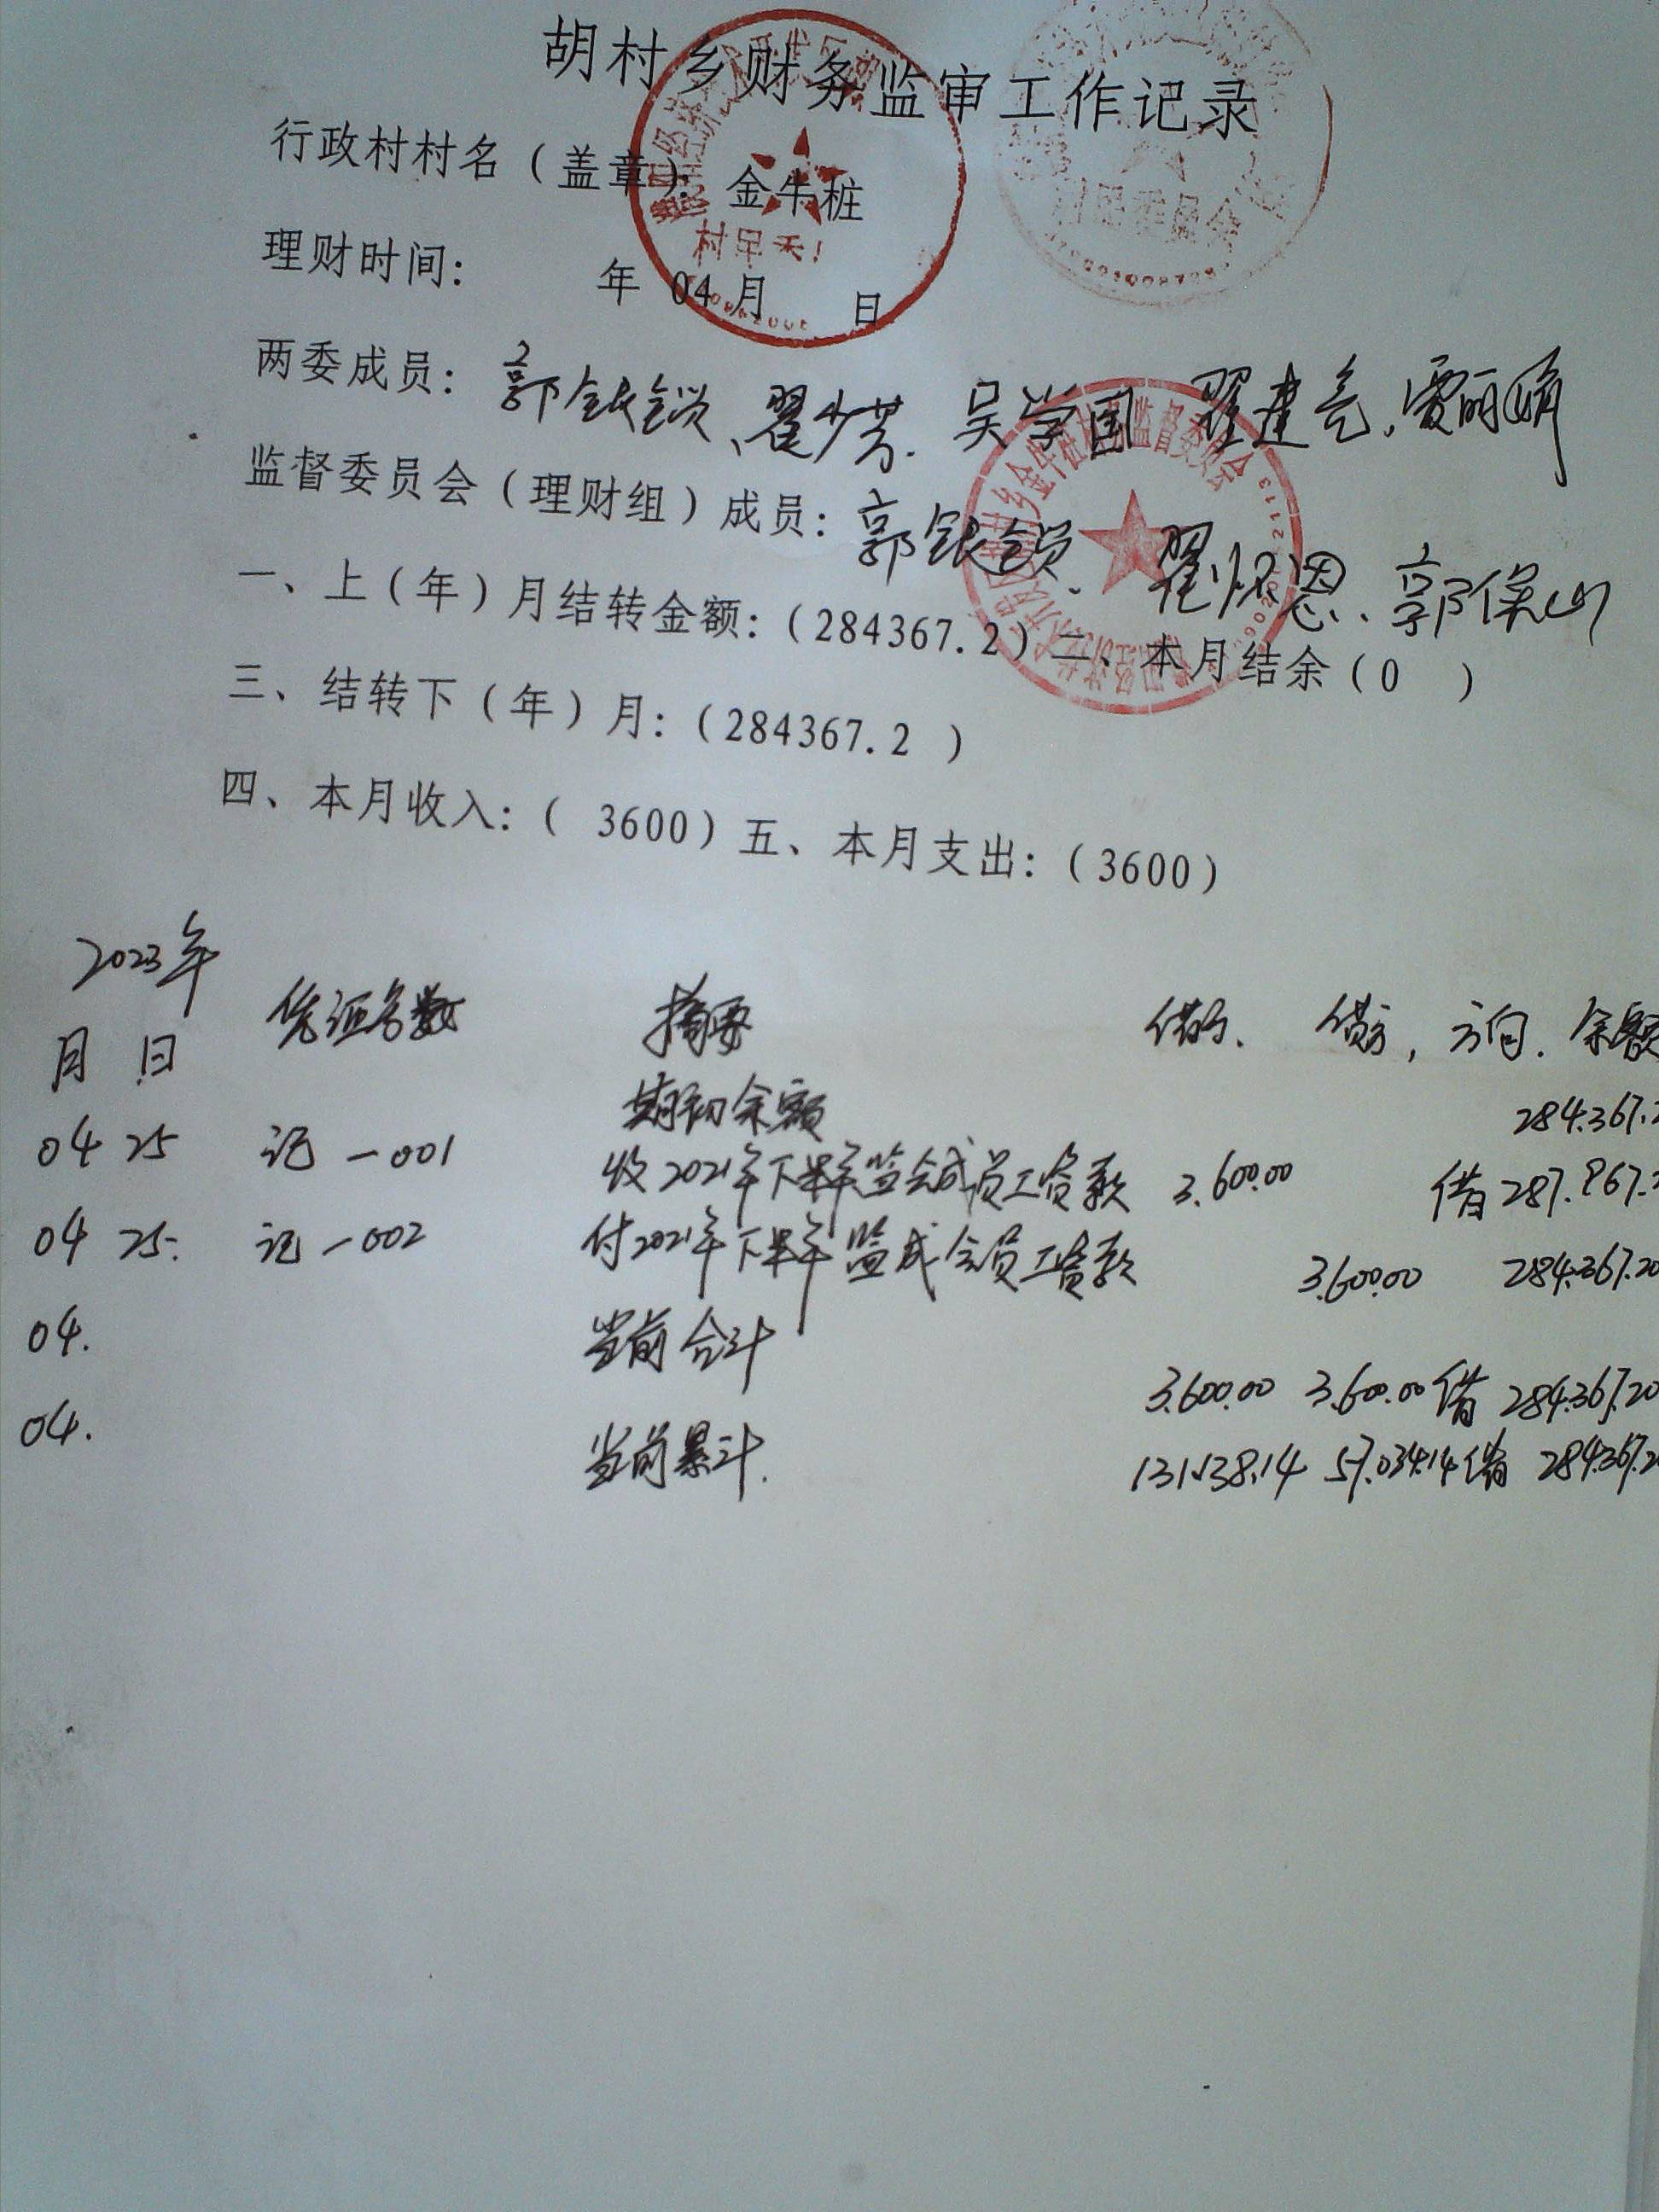 胡村乡财务监审工作记录
行政村村名（盖章）：金牛桩
理财时间：　　年 04月　　日
两委成员：郭银锁、翟少芳.吴学国 翟建亮,贾丽娟
监督委员会（理财组）成员：郭银锁、翟怀恩、郭保山
一、上（年）月结转金额：（284367.2）二、本月结余（0 ）
三、结转下（年）月：（284367.2 ）
四、本月收入：（ 3600）五、本月支出：（3600）
2023年
月 日 凭证名数 摘要 借方. 贷方, 方向. 余额
期初余额 284.367.2
04 25 记-001 收2021年下半年监会成员工资款 3.600.00 借 287.967.2
04 25. 记-002 付2021年下半年监成会员工资款 3.600.00 284.367.20
04. 当前合计 3.600.00 3.600.00 借 284.367.20
04. 当前累计. 57.034.14 借 284.367.2
村民委员会
监督委员会